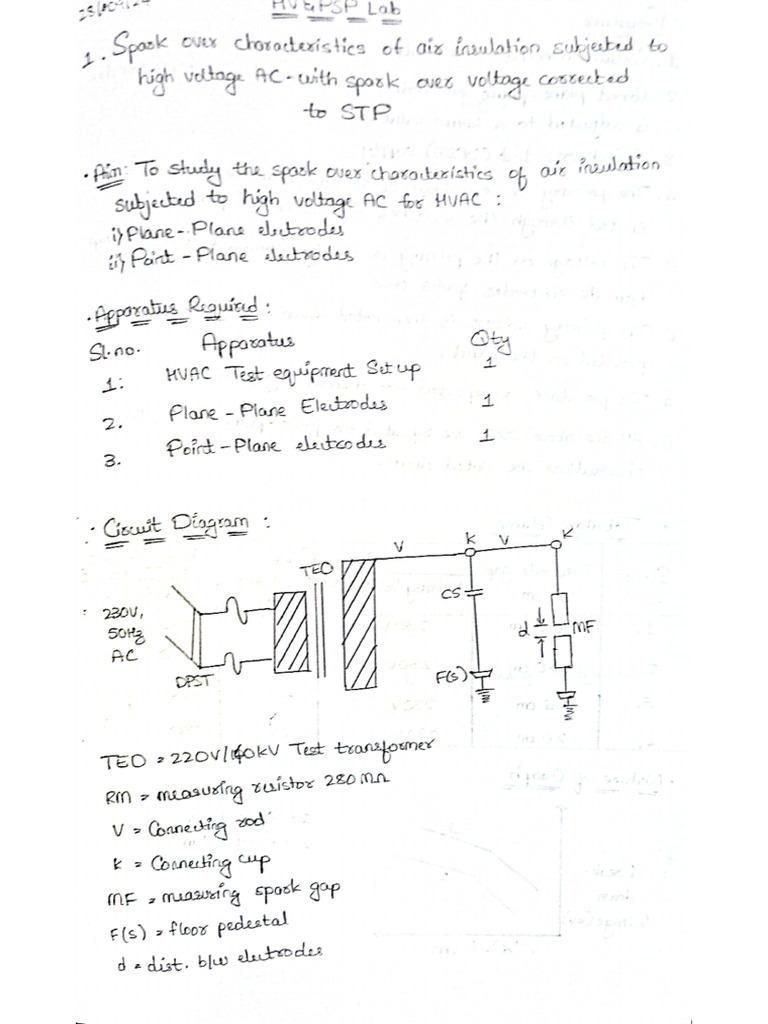 HV & PSP Lab
1. Spark over characteristics of air insulation subjected to
high voltage AC - with spark over voltage corrected
to STP
• Aim: To study the spark over characteristics of air insulation
subjected to high voltage AC for HVAC :
i) Plane - Plane electrodes
ii) Point - Plane electrodes
• Apparatus Required :
Sl.no. Apparatus Qty
1: HVAC Test equipment Set up 1
2. Plane - Plane Electrodes 1
3. Point - Plane electrodes 1
• Circuit Diagram :
V K V K
TEO
CS
230V,
50Hz
AC
d MF
DPST
F(s)
TEO = 220V/140KV Test transformer
RM = measuring resistor 280 MΩ
V = Connecting rod
K = Connecting cup
MF = measuring spark gap
F(s) = floor pedestal
d = dist. b/w electrodes